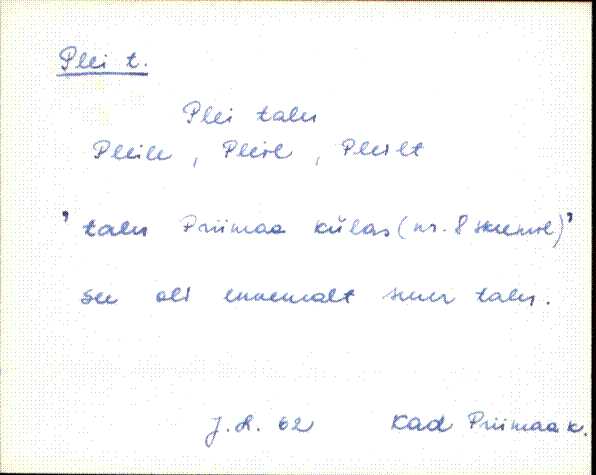 Plei t.
Plei talu
Pleile, Pleil, Pleilt
'talu Priimaa külas (nr. 8 skeemil)'
see oli ennemalt suur talu.
J. R. 62 Kad Priimaa k.